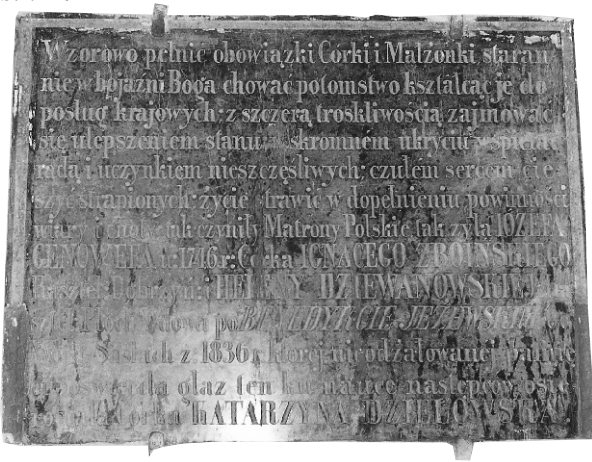 Wzorowo pełnić obowiązki Córki i Małżonki staran-
nie w bojaźni Boga chować potomstwo kształcąc je do
posług krajowych: z szczerą troskliwością zajmować
się ulepszeniem stanu w skromnem ukryciu wspierać
radą i uczynkiem nieszczęśliwych; czułem sercem cie-
szyć strapionych: życie strawić w dopełnieniu powinności
wiary i cnoty, tak czyniły Matrony Polskie, tak żyła JÓZEFA
GENOWEFA u: 1746 r: Córka IGNACEGO ZBOIŃSKIEGO
Dobrzyń: i HELENY DZIEWANOWSKIEJ
wdowa po JEŻEWSKIM
z. 1836 r. której nieodżałowanej pamię-
ci poświęcała głaz ten ku nauce następców
córka KATARZYNA DZIEŁOWSKA